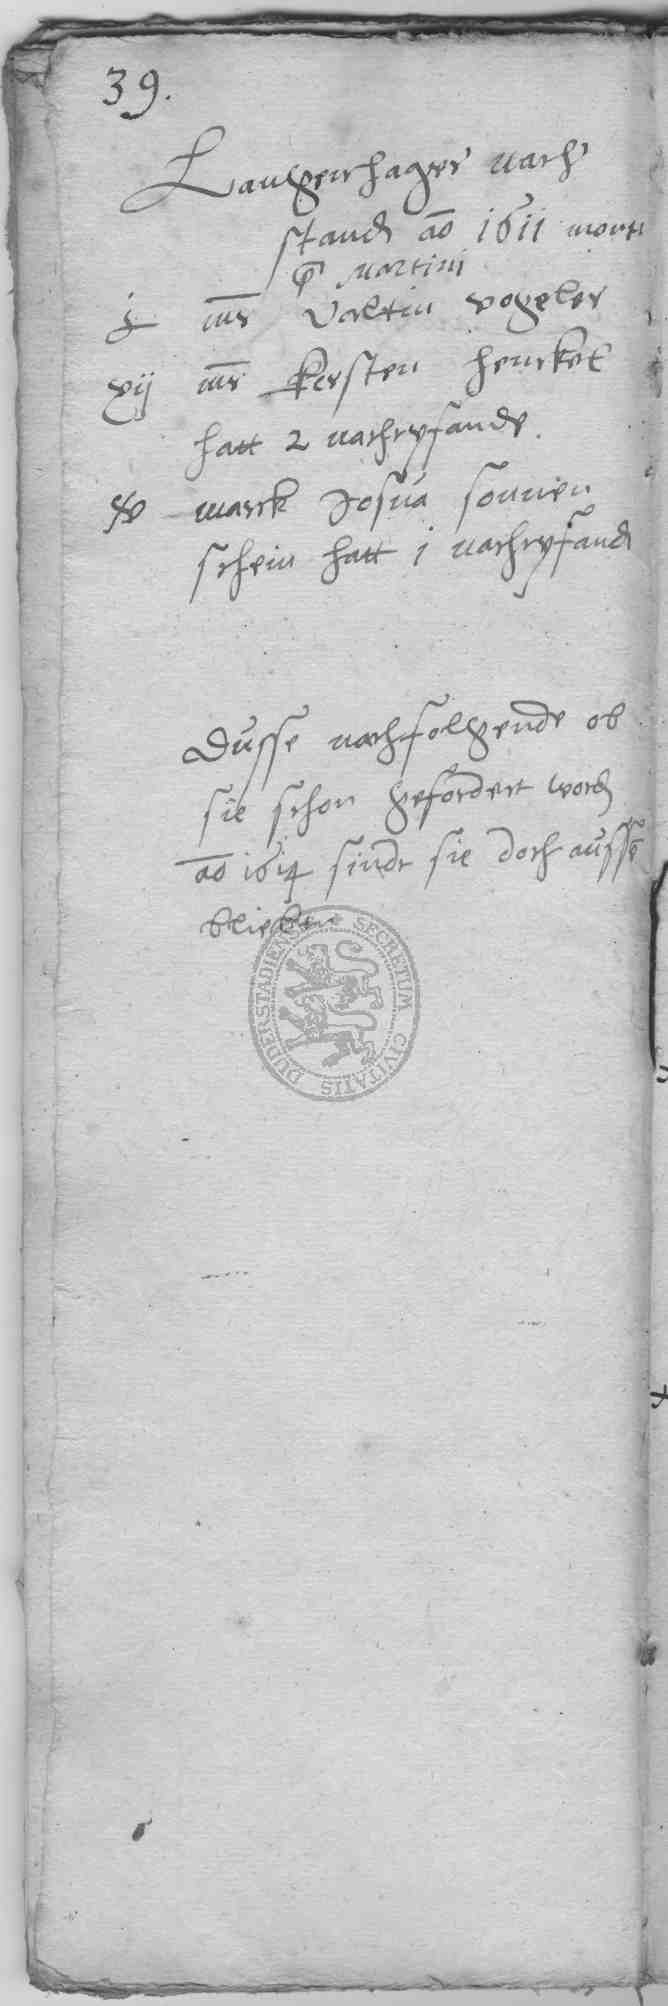 39.
Langenhager nach
stand ao 1611 mont
Martini
j mr Valtin vogeler
xij mr Kersten henckel
hatt 2 nachryfande
xv marck Josua sonnen
schein hatt 1 nachryfand
Dusse nachfolgende ob
sie schon gefordert word
ao 1614 sindt sie doch aussē
blieben
SECRETUM CIVITATIS DUDERSTADIENSIS